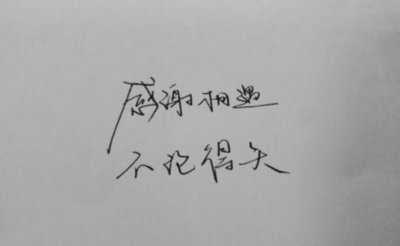 感谢相遇
不犯得失